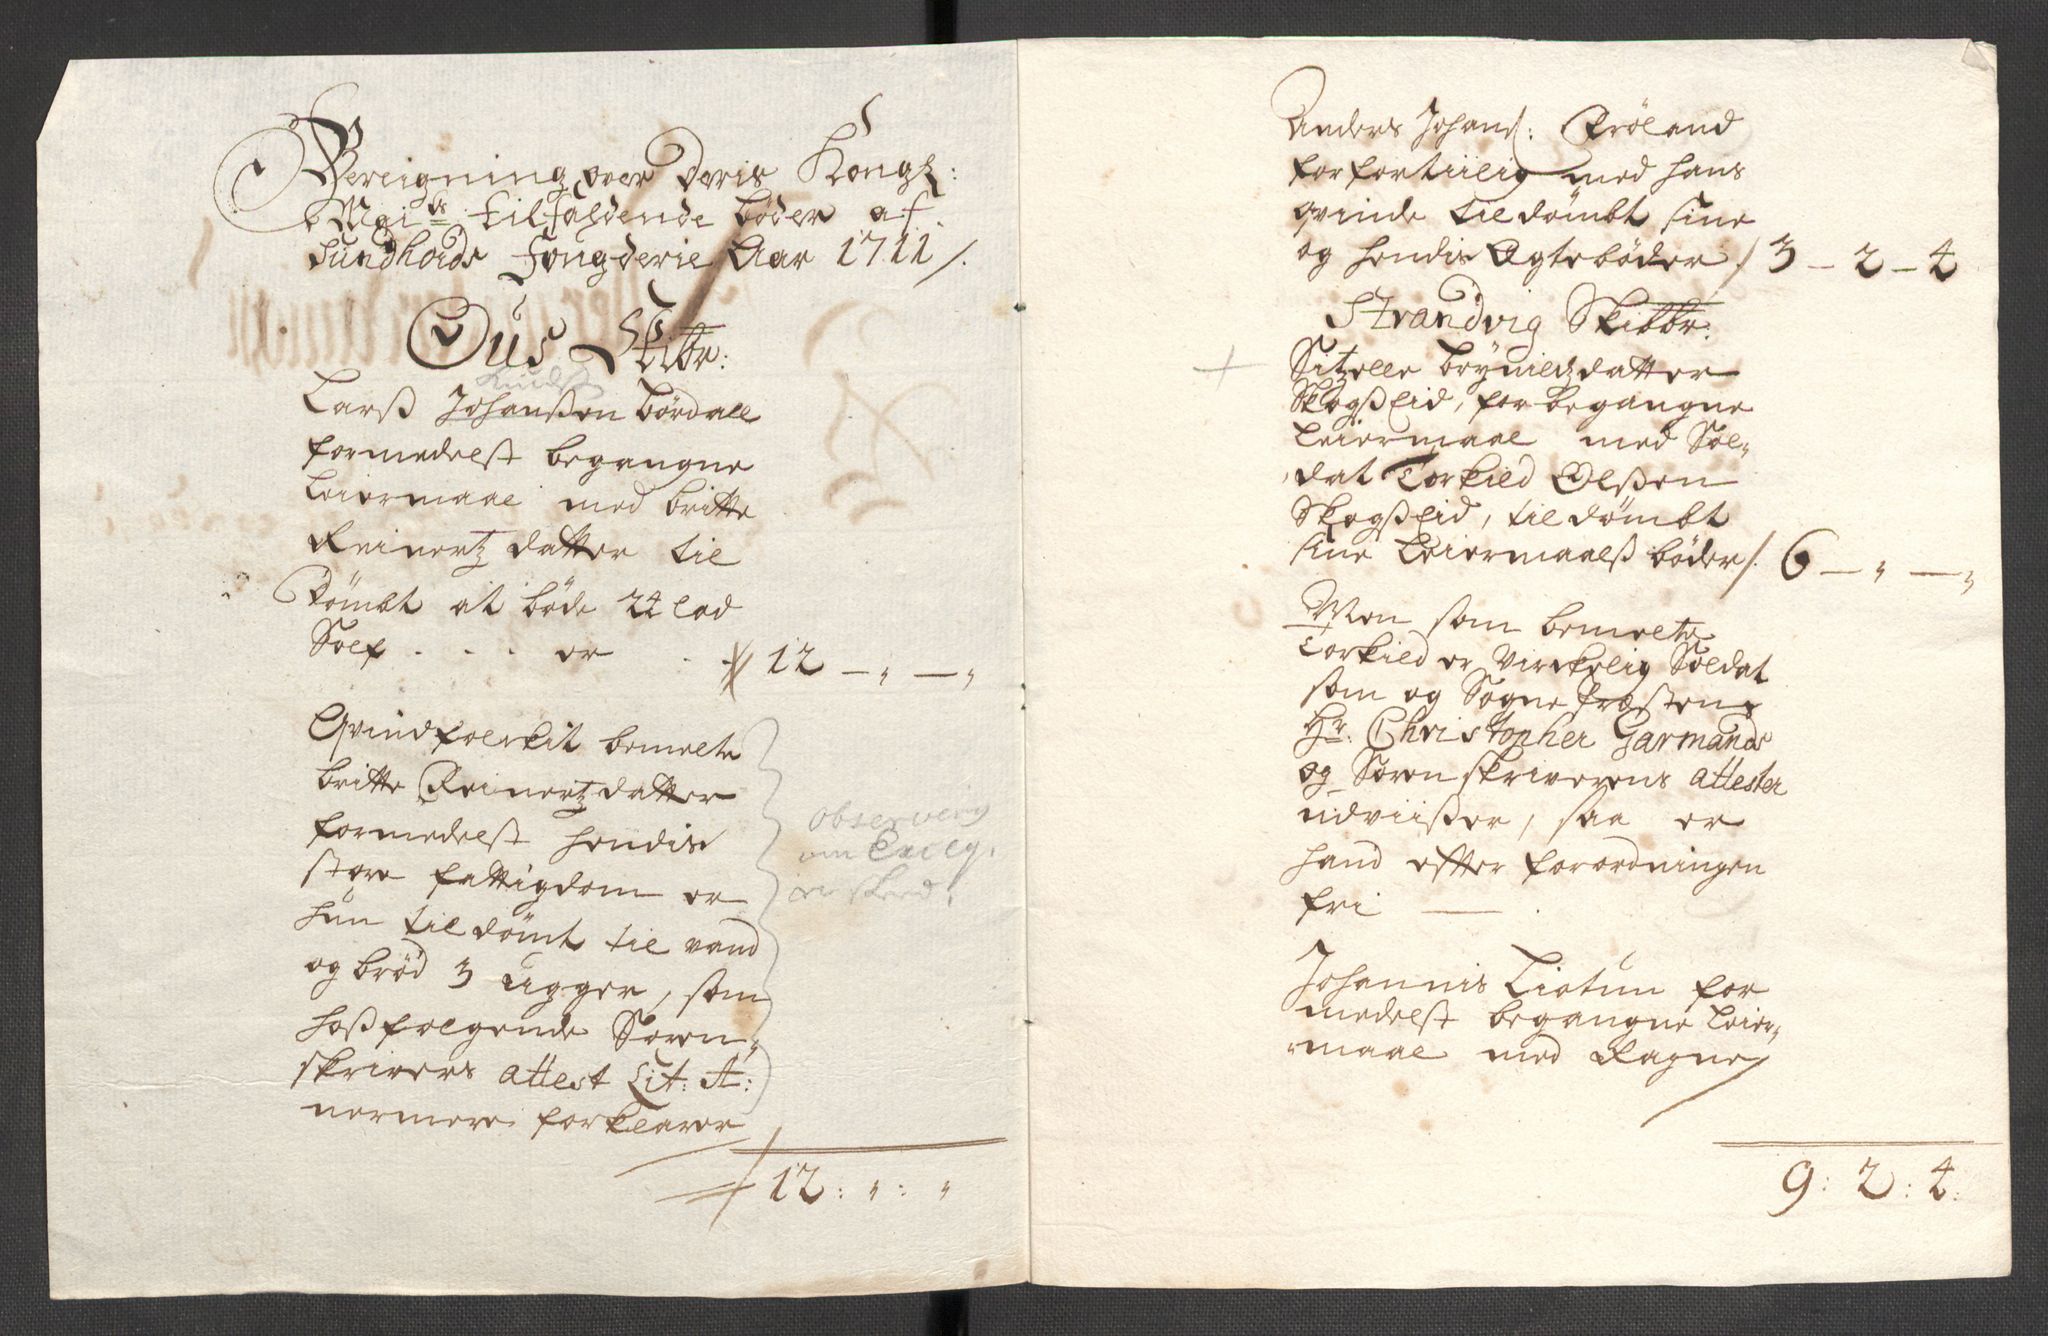 Bereigning over Deris Kongl:
Mai:ts tilfaldende bøder af
Sundhords Fougderie Aar 1711/.
Ous Skibr:
Knuds
Larß Johanßen Børdall
formedelst begangne
Leiermaal med britte
Reinertz datter til
Dømbt at bøde 24 lod
Sølf . . . er . . 12 — " — "
Qvindfolckit bemelte
britte Reinertzdatter
formedelst hendis
store fattigdom er
hun tildømt til vand
og brød 3 Ugger, som
hoßfølgende Soren-
skrivers attest Lit: A:
nermere forklarer
observeris
om Execq.
er skeed.
12 : " : "
Anders Johans: Røland
for fortiilig med hans
qvinde tildømbt sine
og hendis Ægtebøder / 3 — 2 — 4
Strandvig Skibbr:
Sitzelle brynildzdatter
Skogßeid, for begangne
Leiermaal med Sol-
dat Torkild Olßen
Skogßeid, tildømbt
sine Leiermaalß bøder /. 6 — " — "
Men som bemelte
Torkild er virckelig Soldat
som og Sogne Præsten
Hr. Christopher Garmands
og Sorenskriverens attester
udviißer, saa er
hand efter forordningen
fri — .
Johannis Liotun for
medelst begangne Leier-
maal med Ragne
9 : 2 : 4.